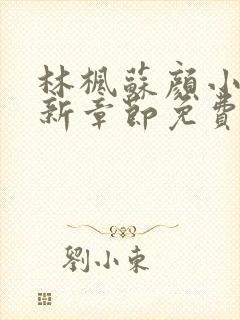 林楓蘇顔小
新章節免費
劉小東